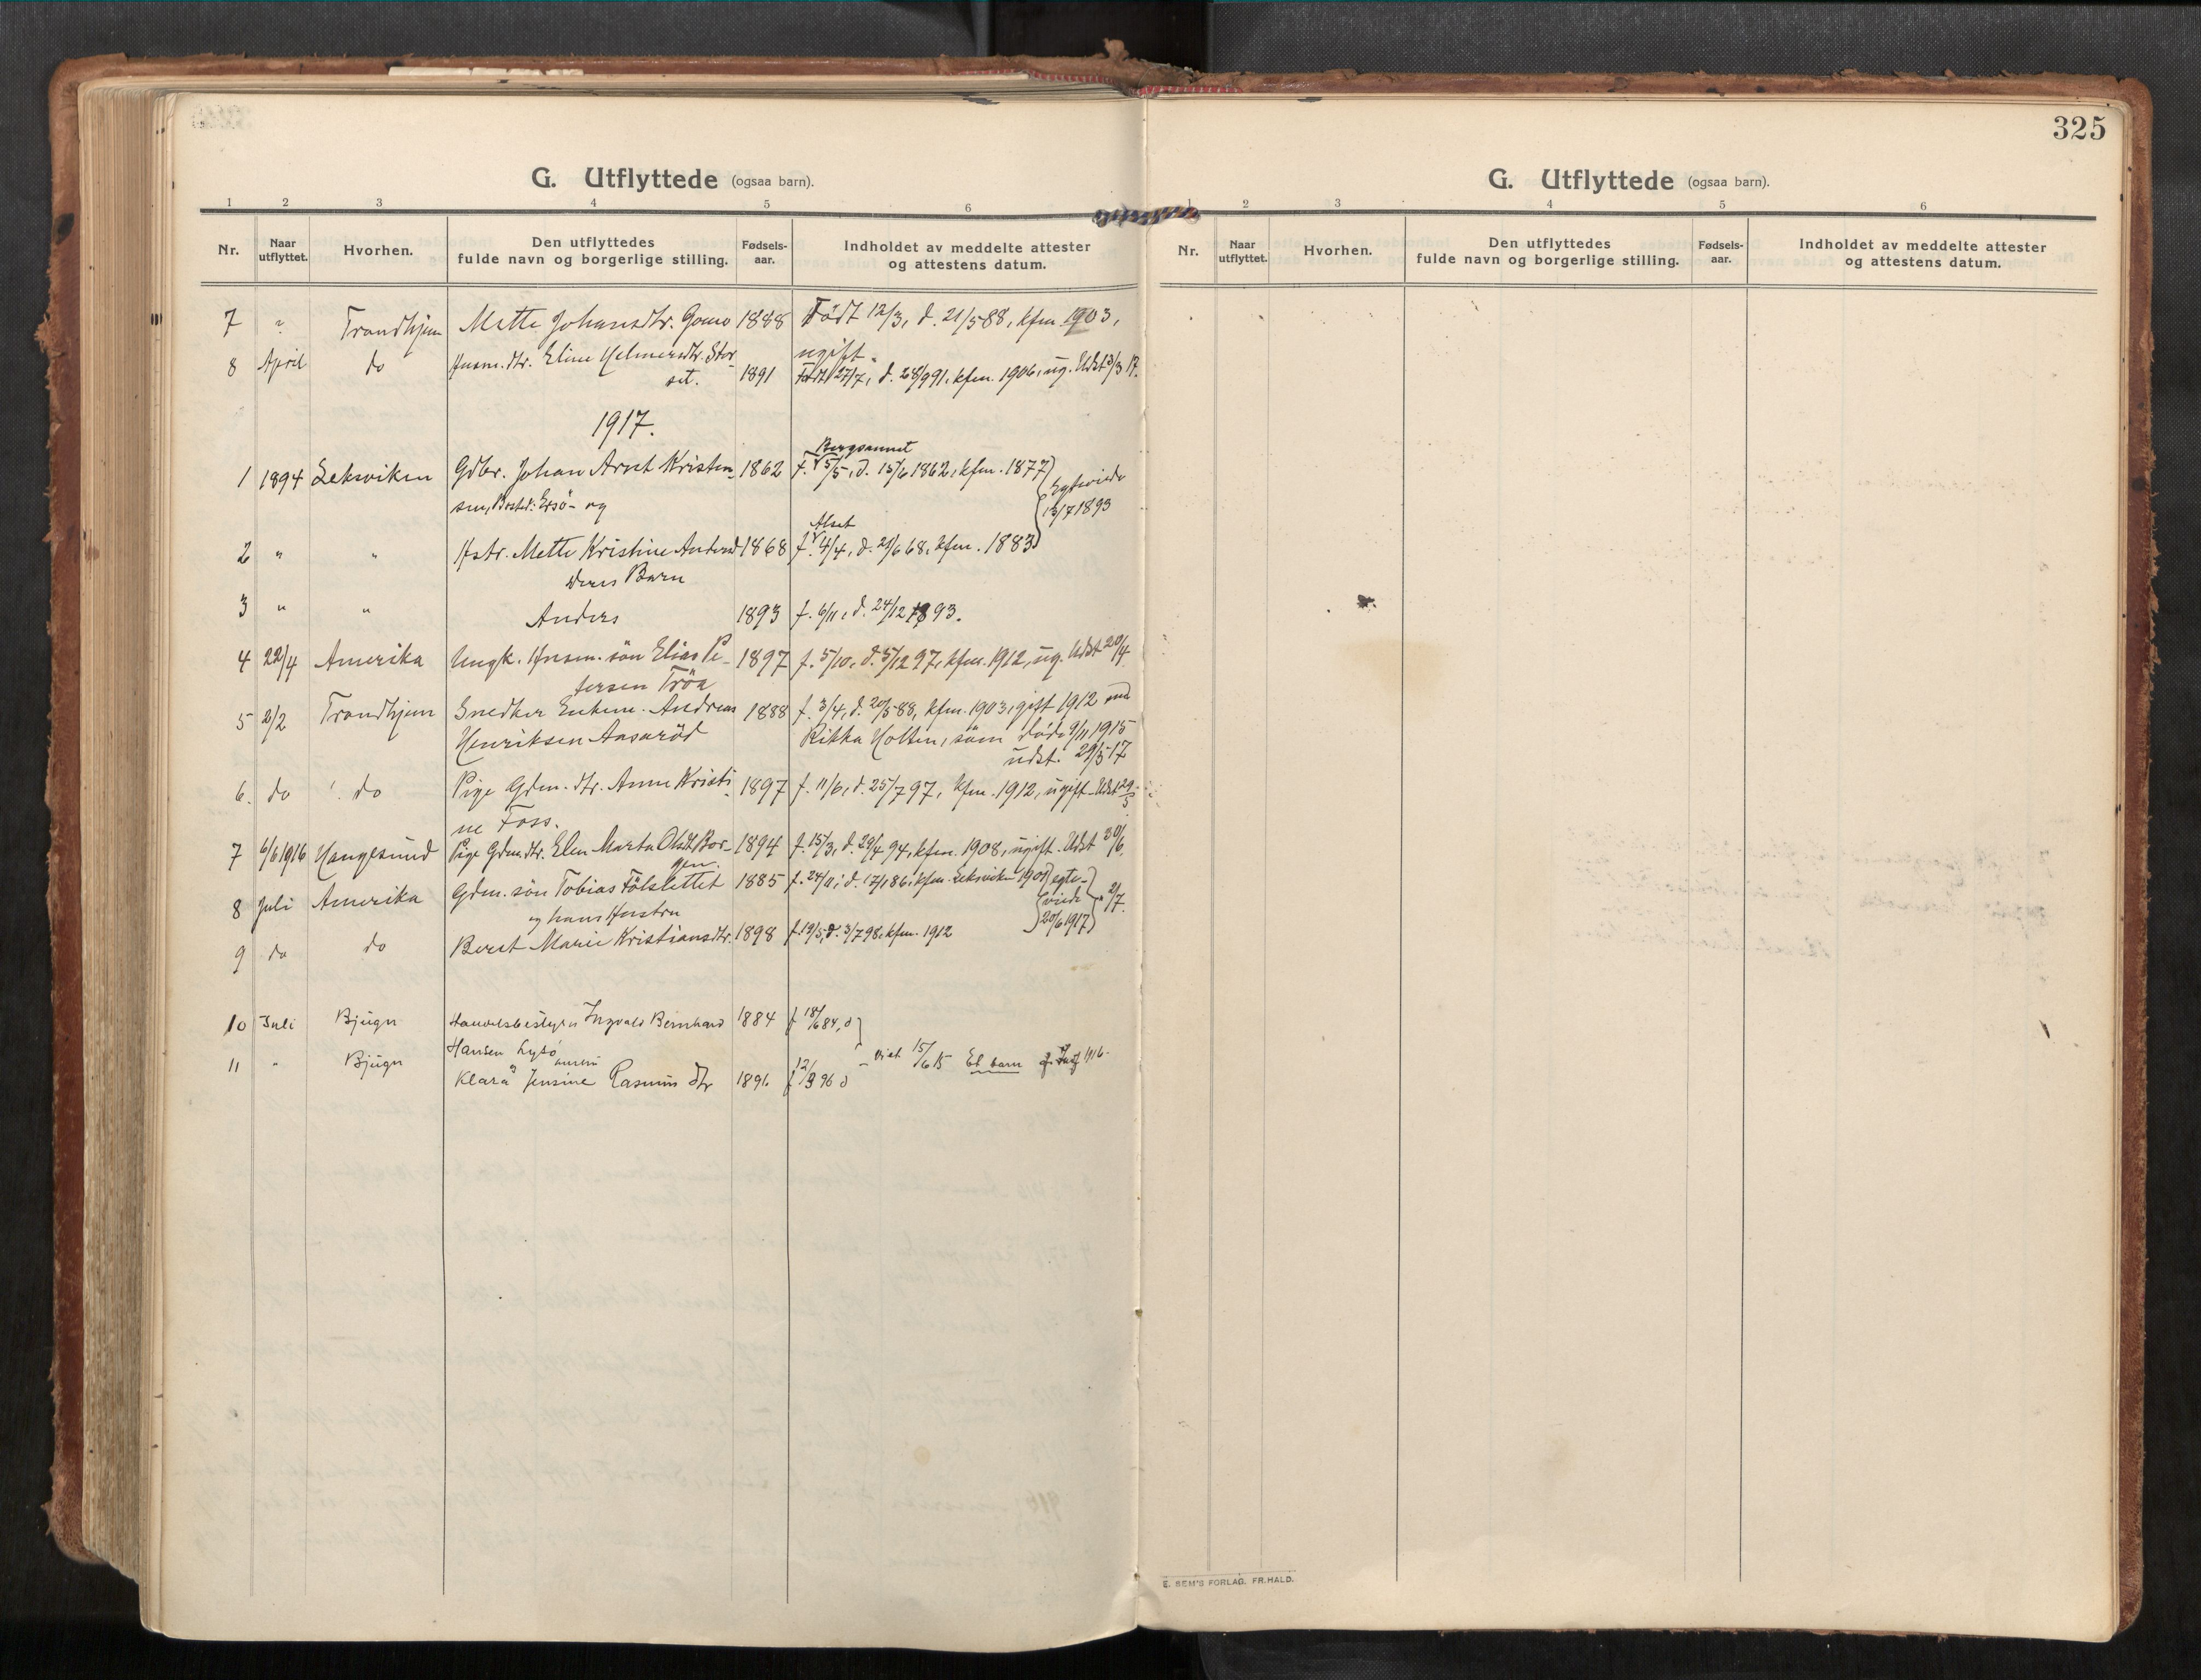 325
G. Utflyttede (ogsaa barn).
1 2 3 4 5 6
Nr. Naar utflyttet. Hvorhen. Den utflyttedes fulde navn og borgerlige stilling. Fødsels-aar. Indholdet av meddelte attester og attestens datum.
7 " Trondhjem Mette Johansdtr. 1888 Födt 12/3, d. 21/5 88, kfm. 1903,
ugift.
8 April do Husm. dtr. Eline Helmersdtr. Stor-
set. 1891 Födt 27/7, d. 28/9 91, kfm. 1906, ug. Udst 3/3 17.
1917.
Bergsaunet
1 1894 Leksviken Gdbr. Johan Arnt Kristen- 1862 f. 5/5, d. 15/6 1862, kfm. 1877
sen, Bosted: Ersö - og
Egteviede
13/7 1893
Alset
2 " " Hstr. Mette Kristine Andersd 1868 f. 4/4, d. 21/6 68, kfm. 1883
deres Barn
3 " " Anders 1893 f. 6/11, d. 24/12 1893.
4 22/4 Amerika Ungk. Husm. sön Elias Pe- 1897 f. 5/10, d. 5/12 97, kfm. 1912, ug. Udst 20/4
tersen Tröa
5 2/2 Trondhjem Snedker Enkem. Andreas 1888 f. 3/4, d. 20/5 88, kfm. 1903, gift 1912 med
Henriksen Aasaröd Rikka Holten, som döde 9/11 1915
udst. 29/5 17
6. do do Pige Gdm. dtr. Anne Kristi- 1897 f. 11/6, d. 25/7 97, kfm. 1912, ugift - Udst 29/5
ne Foss.
7 6/6 1916 Haugesund Pige Gdm. dtr. Elen Marta Olsdtr Bor- 1894 f. 15/3, d. 29/4 94, kfm. 1908, ugift - Udst 30/6.
gen.
8 Juli Amerika Gdm. sön Tobias Fölstettet 1885 f. 24/11, d. 17/1 86, kfm. Leksviken 1901 egte-
viede " 2/7.
og hans Hustru 20/6 1917
9 do do Beret Marie Kristiansdtr. 1898 f. 19/5, d. 3/7 98, kfm. 1912
10 Juli Bjugn Handelsbestyrer Ingvald Bernhard 1884 f 18/6 84, d
Hansen Lysö
11 " Bjugn og
Klara Jensine Rasmus dtr 1896 f 12/3 96 d - viet 15/6 15 Et barn 1916.
G. Utflyttede (ogsaa barn).
1 2 3 4 5 6
Nr. Naar utflyttet. Hvorhen. Den utflyttedes fulde navn og borgerlige stilling. Fødsels-aar. Indholdet av meddelte attester og attestens datum.
E. SEM'S FORLAG. FR.HALD.